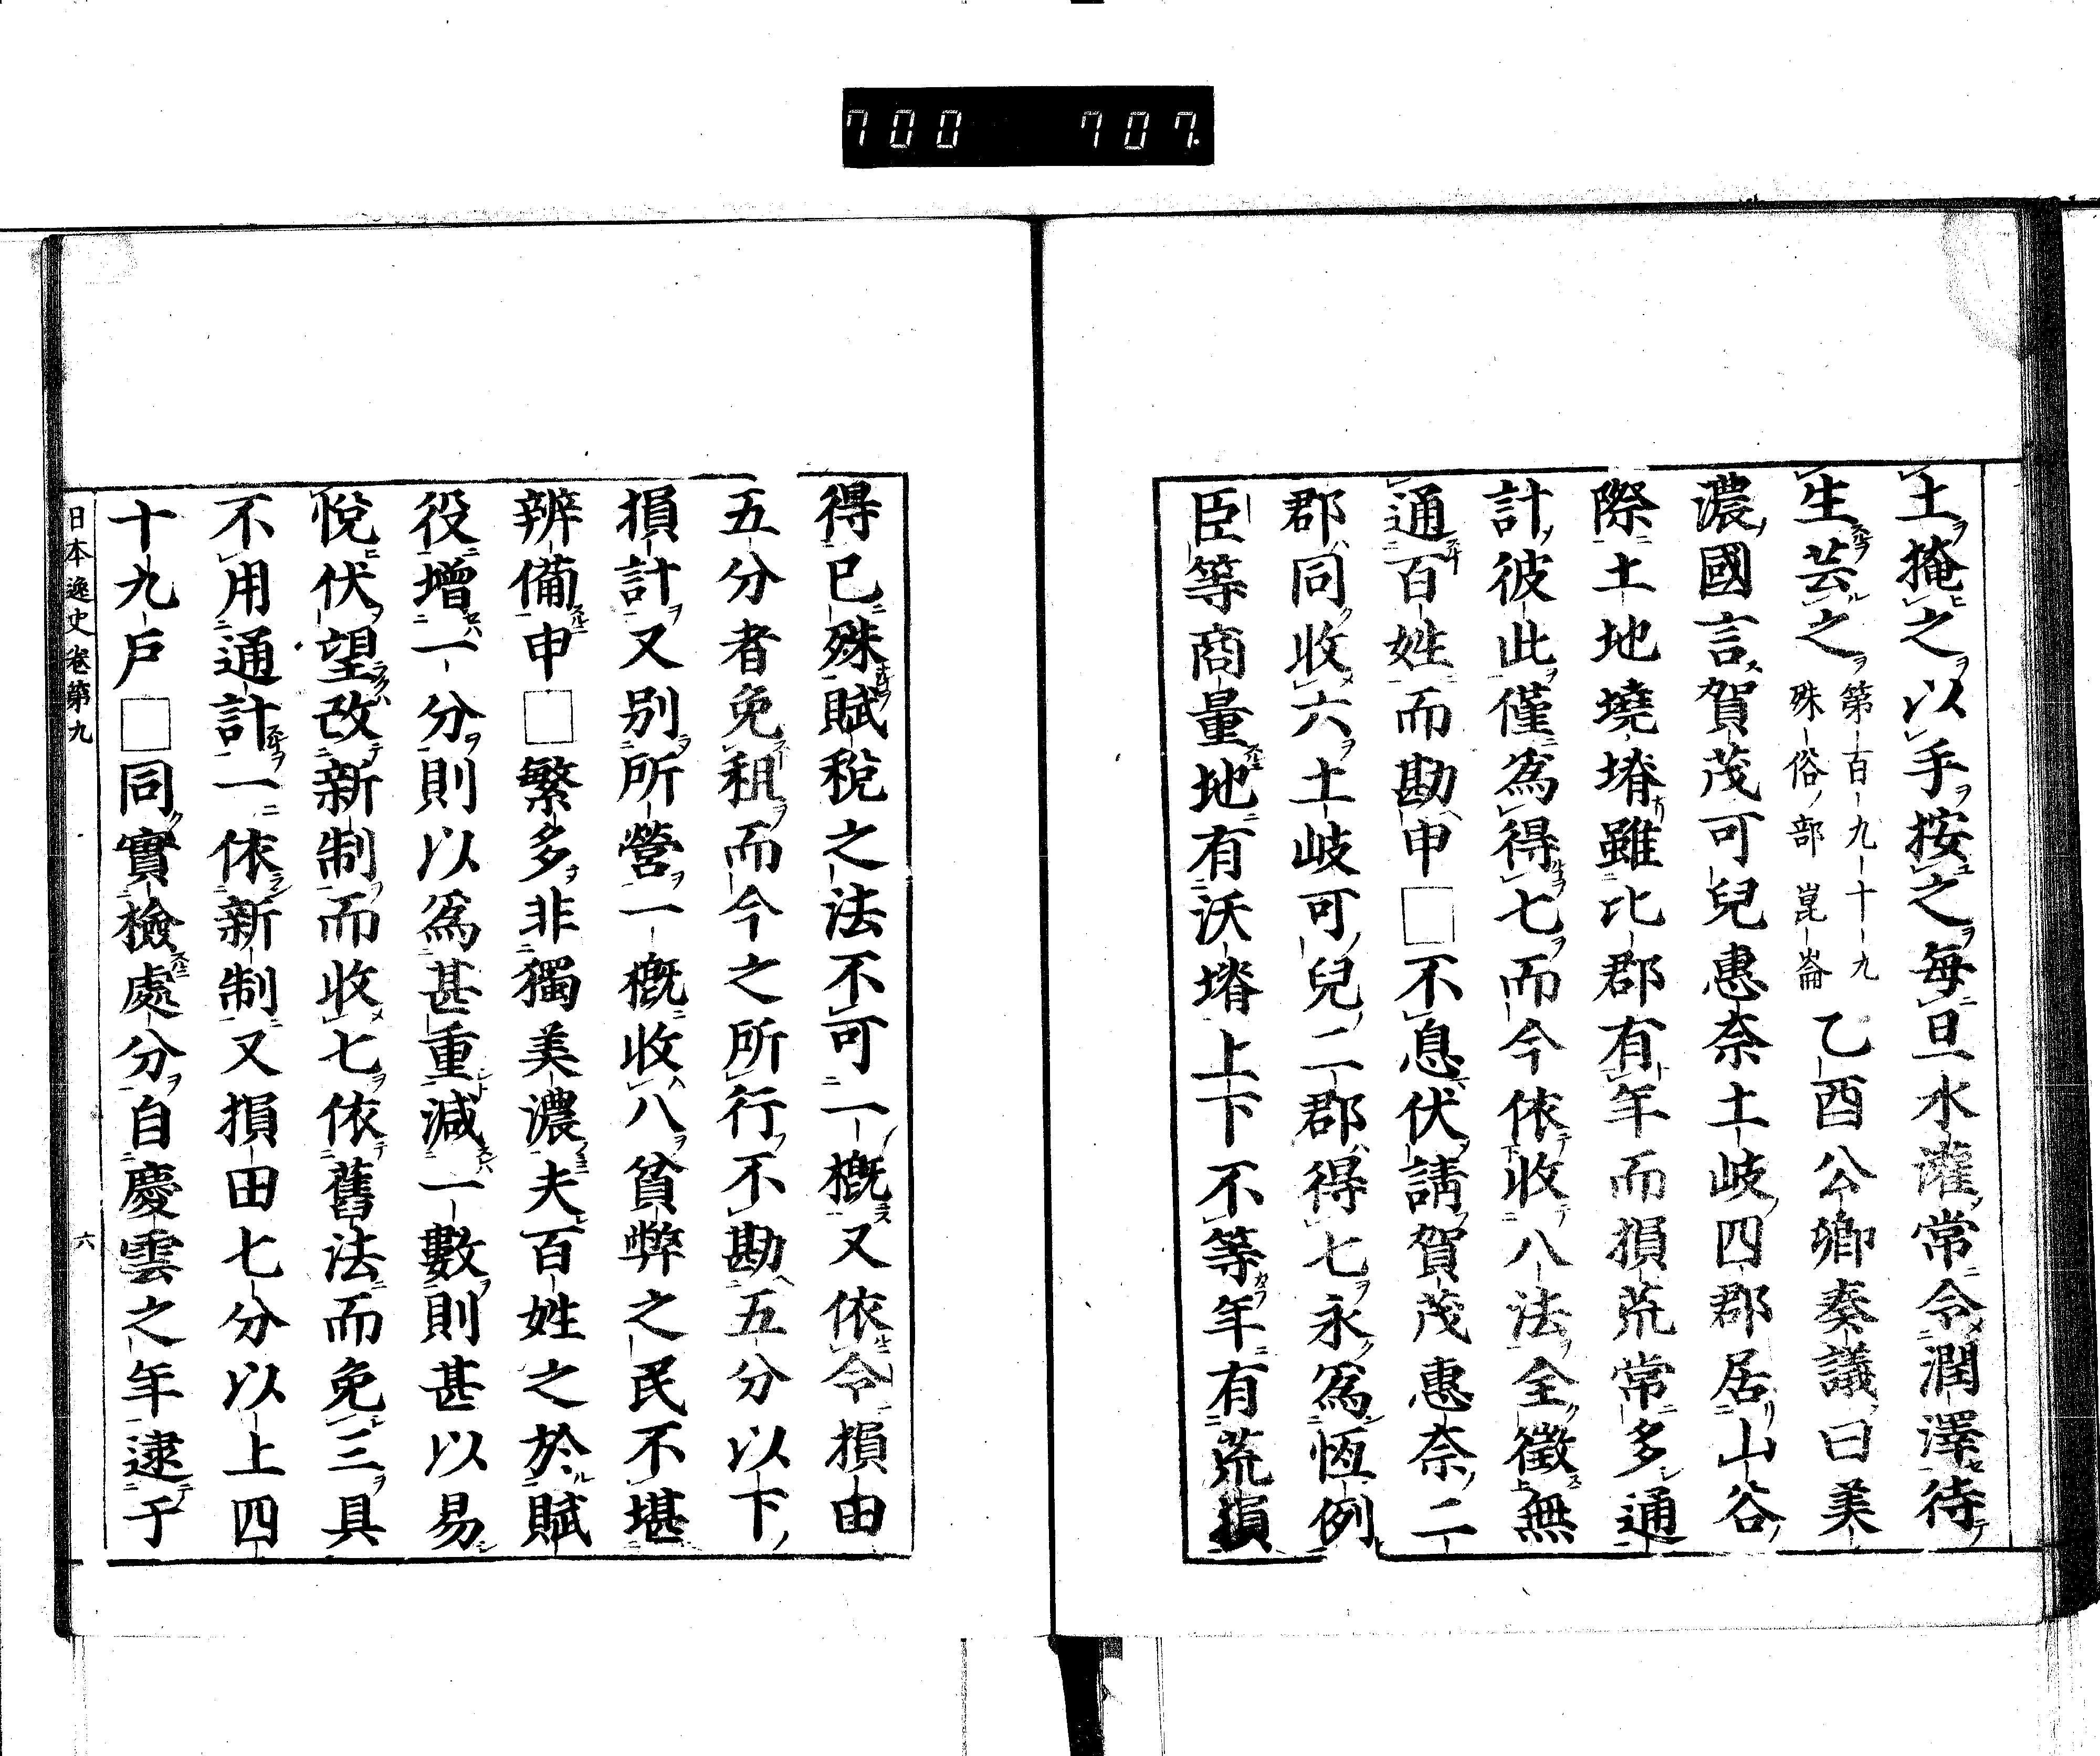 700 707.
土掩之以手按之每旦水灌常令潤澤待
生芸之第百九十九殊俗部崑崙乙酉公卿奏議曰美
濃國言賀茂可兒惠奈土岐四郡居山谷
際土地墝塉雖比郡有年而損荒常多通
計彼此僅爲得七而今依收八法全徵無
通百姓而勘申□不息伏請賀茂惠奈二
郡同收六土岐可兒二郡得七永爲恆例
臣等商量地有沃塉上下不等年有荒損
得已殊賦税之法不可一概又依令損由
五分者免租而今之所行不勘五分以下
損計又別所營一概收八貧弊之民不堪
辨備申□繁多非獨美濃夫百姓之於賦
役增一分則以爲甚重減一數則甚以易
悅伏望改新制而收七依舊法而免三具
不用通計一依新制又損田七分以上四
十九戶□同實檢處分自慶雲之年逮于
日本逸史卷第九 六